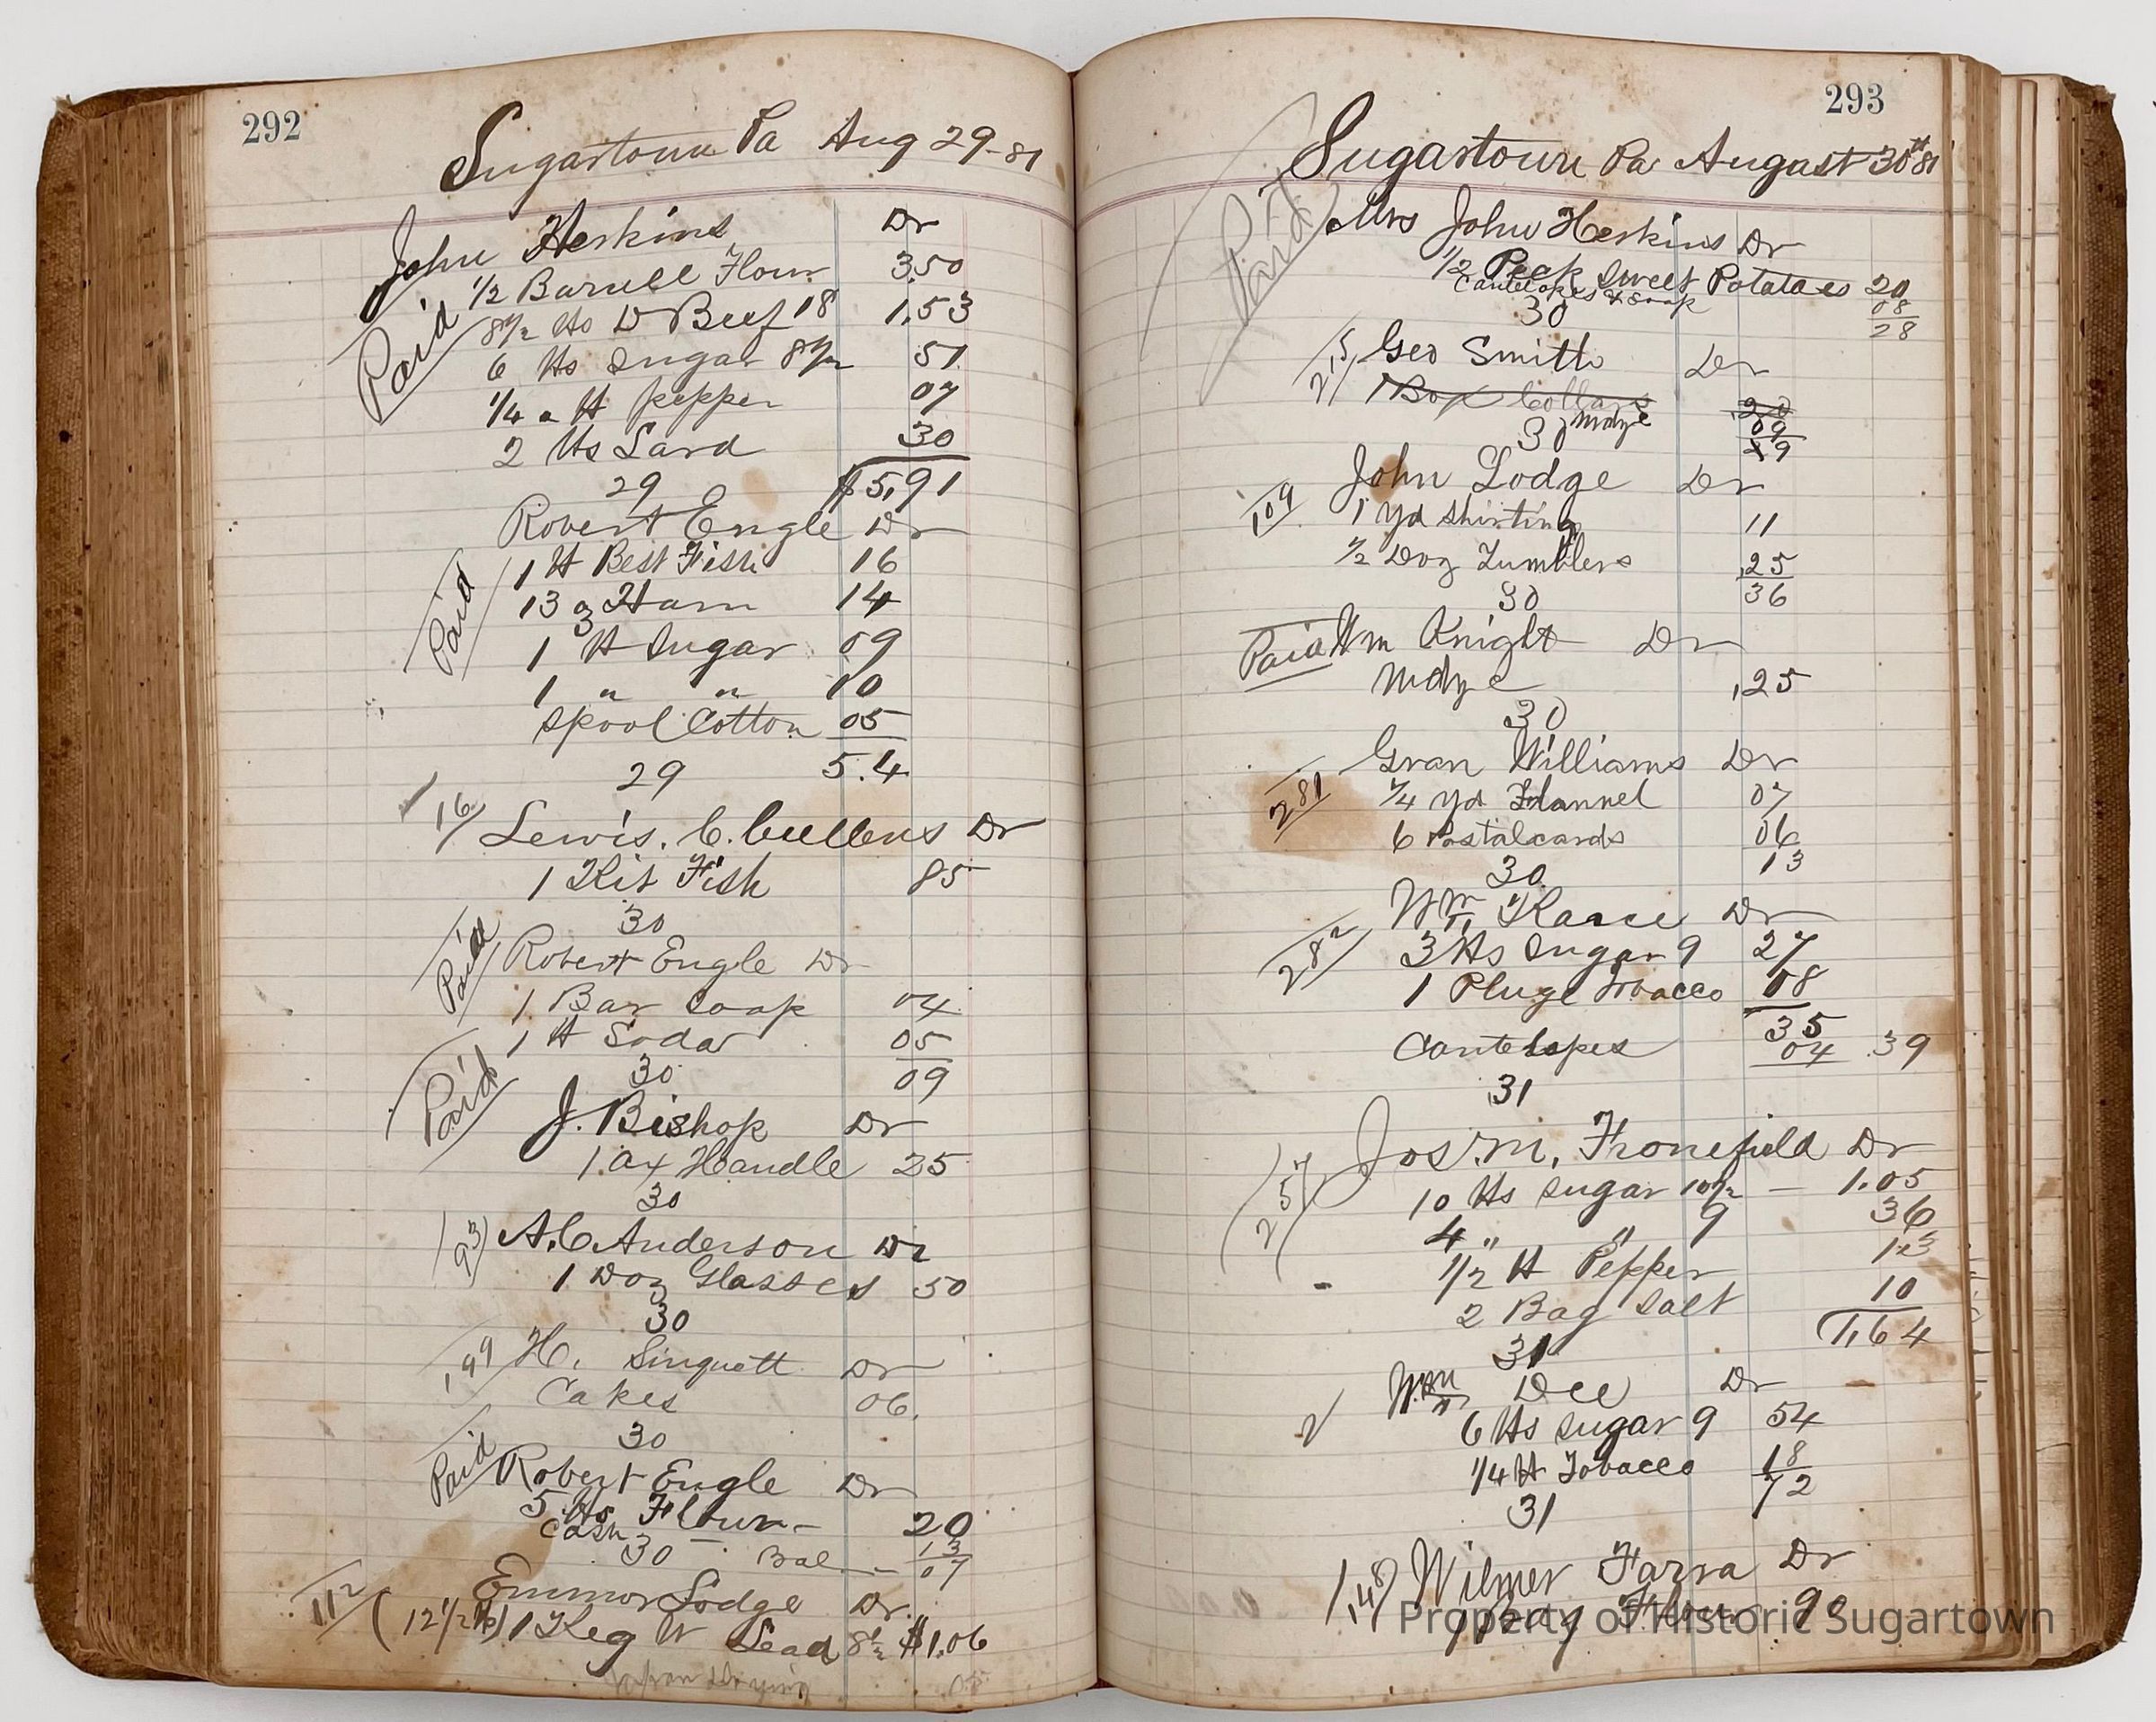 292
Sugartown Pa Aug 29-81
John Herkins Dr
Paid
1/2 Barrell Flour 3.50
8 1/2 lbs D Beef 18 1.53
6 lbs Sugar 8 1/2 51
1/4 a lb pepper 07
2 lbs Lard 30
29 $5.91
Robert Engle Dr
Paid
1 lb Best Fish 16
13 oz Ham 14
1 lb Sugar 09
1 " " 10
Spool Cotton 05
29 5.4
16 Lewis. C. Cullens Dr
1 Kit Fish 85
30
Paid Robert Engle Dr
1 Bar Soap 04
1 lb Soda 05
30 09
Paid J. Bishop Dr
1 ax Handle 25
30
93 A.C Anderson Dr
1 Doz Glasses 50
30
199 H. Singuett Dr
Cakes 06.
30
Paid Robert Engle Dr
5 lbs Flour - 20
Cash 13
30 - Bal - 07
112 Emmor Lodge Dr.
(12 1/2 lb) 1 Keg W Lead 8 1/2 $1.06
Japan Drying 05
293
Sugartown Pa August 30th 81
Paid
Mrs John Herkins Dr
1/2 Peck Sweet Potatoes 20
Cantelopes & Soap 08
30 28
215 Geo Smith Dr
1 Box Collars 20
Mdze 09
30 29
109 John Lodge Dr
1 yd Shirting 11
1/2 Doz Tumblers .25
30 36
Paid Wm Knight Dr
Mdze .25
30
281 Gran Williams Dr
1/4 yd Flannel 07
6 Postalcards 06
30 13
282 Wm Karce Dr
3 lbs Sugar 9 27
1 Pluge Tobacco 08
35
Cantelopes 04 .39
31
257 Jos. M. Fronefield Dr
10 lbs Sugar 10 1/2 - 1.05
4 " " 9 36
1/2 lb Pepper 13
2 Bag Salt 10
31 1.64
2 Wm Dee Dr
6 lbs Sugar 9 54
1/4 lb Tobacco 18
31 72
148 Wilmer Farra Dr
1 Bag Flour 90
Property of Historic Sugartown